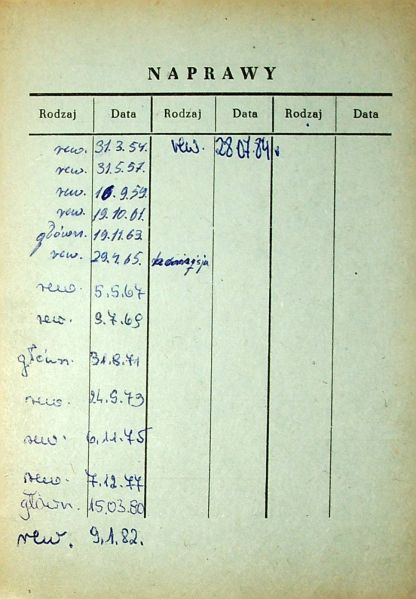 NAPRAWY
Rodzaj Data Rodzaj Data Rodzaj Data
rew. 31.3.54. rew. 28.07.84
rew. 31.5.57.
rew. 16.9.59.
rew. 19.10.61.
główn. 19.11.63.
rew. 29.4.65.
rew. 5.5.67
rew. 9.7.69
główn. 31.8.71
rew. 24.9.73
rew. 6.11.75
rew. 7.12.77
główn. 15.03.80
rew. 9.1.82.